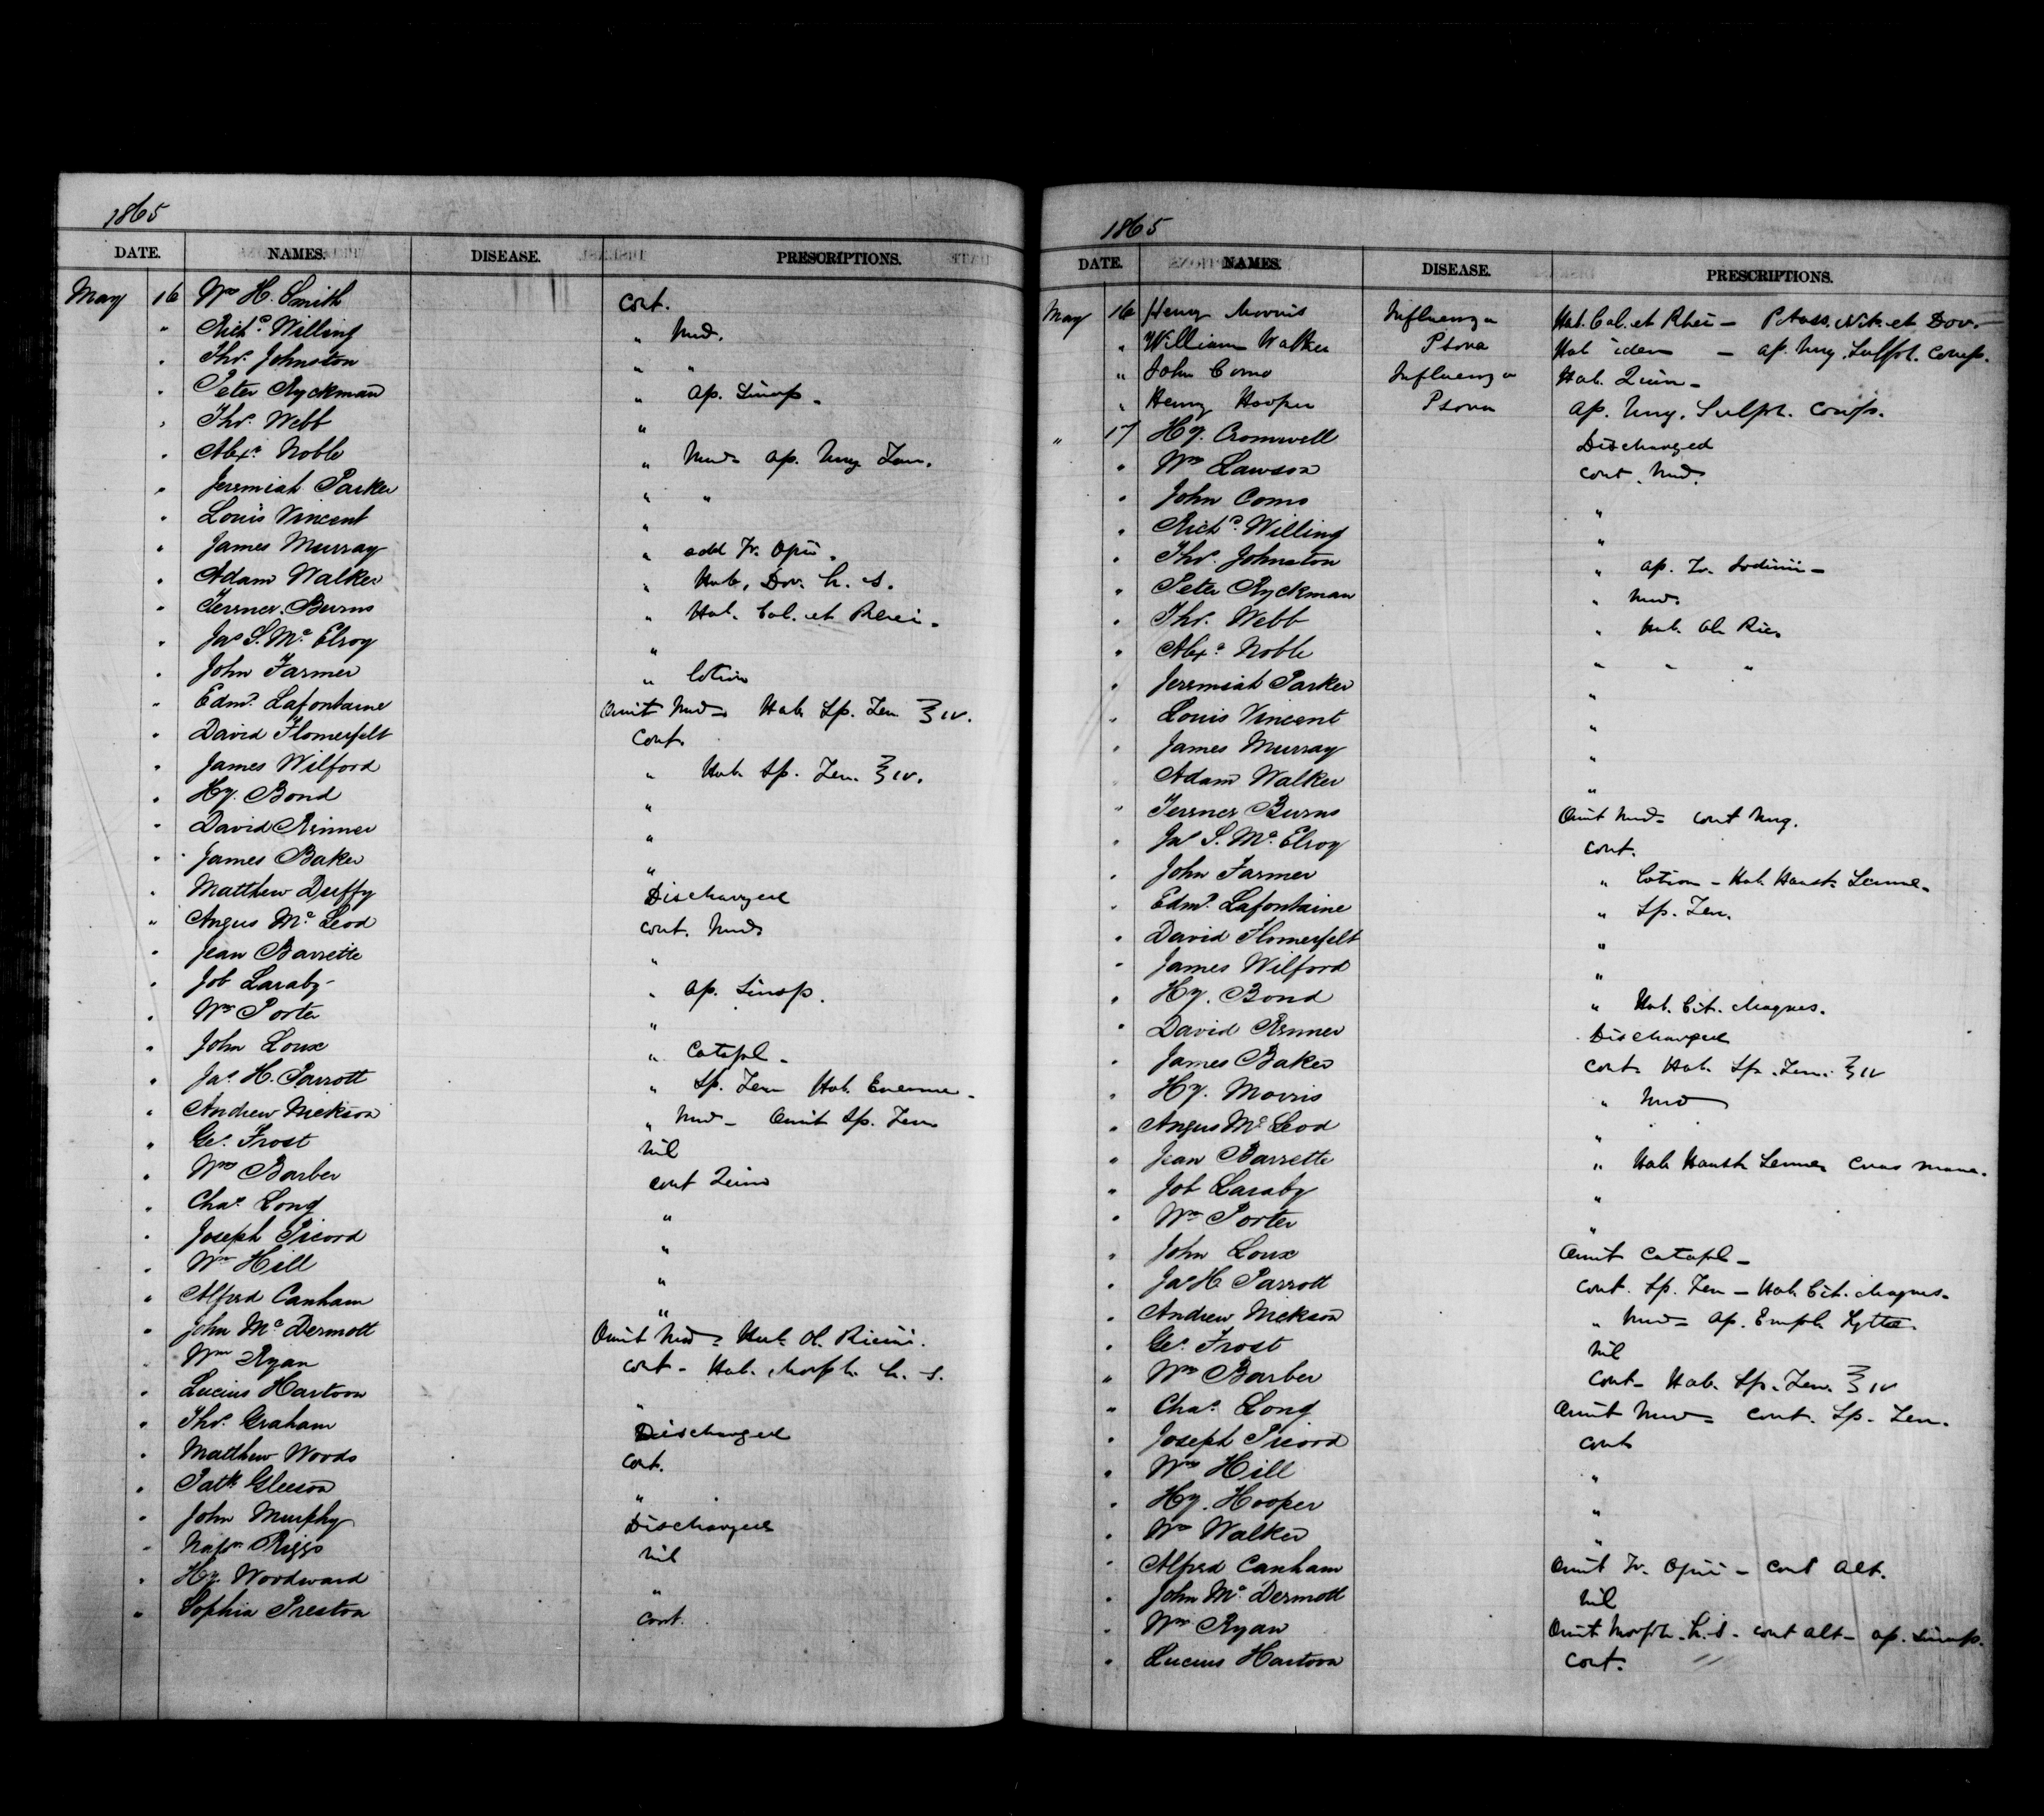 1865
DATE. NAMES. DISEASE. PRESCRIPTIONS.
May 16 Wm H. Smith cont.
" Richd. Willing " Med.
" Thos. Johnston " "
" Peter Ryckman " ap. Sinap.
" Thos. Webb "
" Alexr. Noble " Med. ap. Ung. Zin.
" Jeremiah Parker " "
" Louis Vincent "
" James Murray " add Tr. Opii.
" Adam Walker " Hab. Dov. h. s.
" Terrner Burns " Hab. Cal. et Rhei.
" Jas S. Mc Elroy "
" John Farmer " lotion
" Edmd. Lafontaine Omit Med. Hab. Sp. Fru. ℥ iv.
" David Flomerfelt cont.
" James Wilford " Hab. Sp. Fru. ℥ iv.
" Hy. Bond "
" David Rimer "
" James Baker "
" Matthew Duffy Discharged
" Angus Mc Leod cont. Med.
" Jean Barrette "
" Job Laraby " ap. Sinap.
" Wm Porter "
" John Loux " Catapl.
" Jas. H. Parrott " Sp. Fru. Hab. Eneme.
" Andrew Nickson " Med. Omit Sp. Fru.
" Geo. Frost Nil
" Wm Barber cont Quin
" Chas. Long "
" Joseph Picord "
" Wm Hill "
" Alfred Canham "
" John Mc Dermott Omit Med. Hab. Ol. Ricini.
" Wm Ryan cont. Hab. Morph. h. s.
" Lucius Hartson "
" Thos. Graham Discharged
" Matthew Woods cont.
" Patk Gleeson "
" John Murphy Discharged
" Napn. Riggs Nil
" Hy. Woodward "
" Sophia Preston cont.
1865
DATE. NAMES. DISEASE. PRESCRIPTIONS.
May 16 Henry Morris Influenza Hab. Cal. et Rhei - Potass. Nit. et Dov.
" William Walker Psora Hab idem - ap. Ung. Sulph. Comp.
" John Como Influenza Hab. Quin -
" Henry Hooper Psora ap. Ung. Sulph. Comp.
" 17 Hy. Cromwell Discharged
" Wm Lawson cont. Med.
" John Como "
" Richd. Willing "
" Thos. Johnston " ap. Tr. Iodinii -
" Peter Ryckman " Med.
" Thos. Webb " Hab. Ol. Ric.
" Alexr. Noble " " "
" Jeremiah Parker "
" Louis Vincent "
" James Murray "
" Adam Walker "
" Terrner Burns Omit Med. cont Ung.
" Jas S. Mc Elroy cont.
" John Farmer " Lotion - Hab. Haust. Sennæ.
" Edmd. Lafontaine " Sp. Fru.
" David Flomerfelt "
" James Wilford "
" Hy. Bond " Hab. Cit. Magnes.
" David Rimer Discharged
" James Baker cont. Hab. Sp. Fru. ℥ iv
" Hy. Morris " Med
" Angus Mc Leod "
" Jean Barrette " Hab. Haust. Sennæ Cras mane.
" Job Laraby "
" Wm Porter "
" John Loux Omit Catapl -
" Jas H. Parrott cont. Sp. Fru - Hab. Cit. Magnes.
" Andrew Nickson " Med. ap. Empl. Lyttæ.
" Geo. Frost Nil
" Wm Barber cont. Hab. Sp. Fru. ℥ iv
" Chas. Long Omit Med. cont. Sp. Fru.
" Joseph Picord cont
" Wm Hill "
" Hy. Hooper "
" Wm Walker "
" Alfred Canham Omit Tr. Opii - cont Alt.
" John Mc Dermott Nil
" Wm Ryan Omit Morph. h. s. cont alt - ap. Sinap.
" Lucius Hartson cont. "